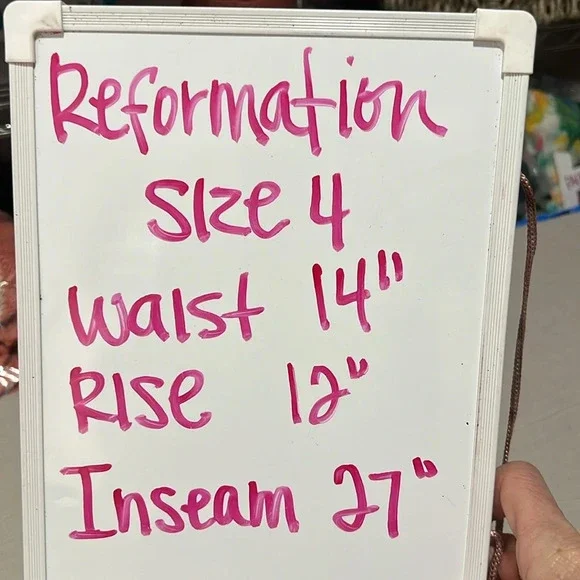 Reformation
Size 4
Waist 14"
Rise 12"
Inseam 27"